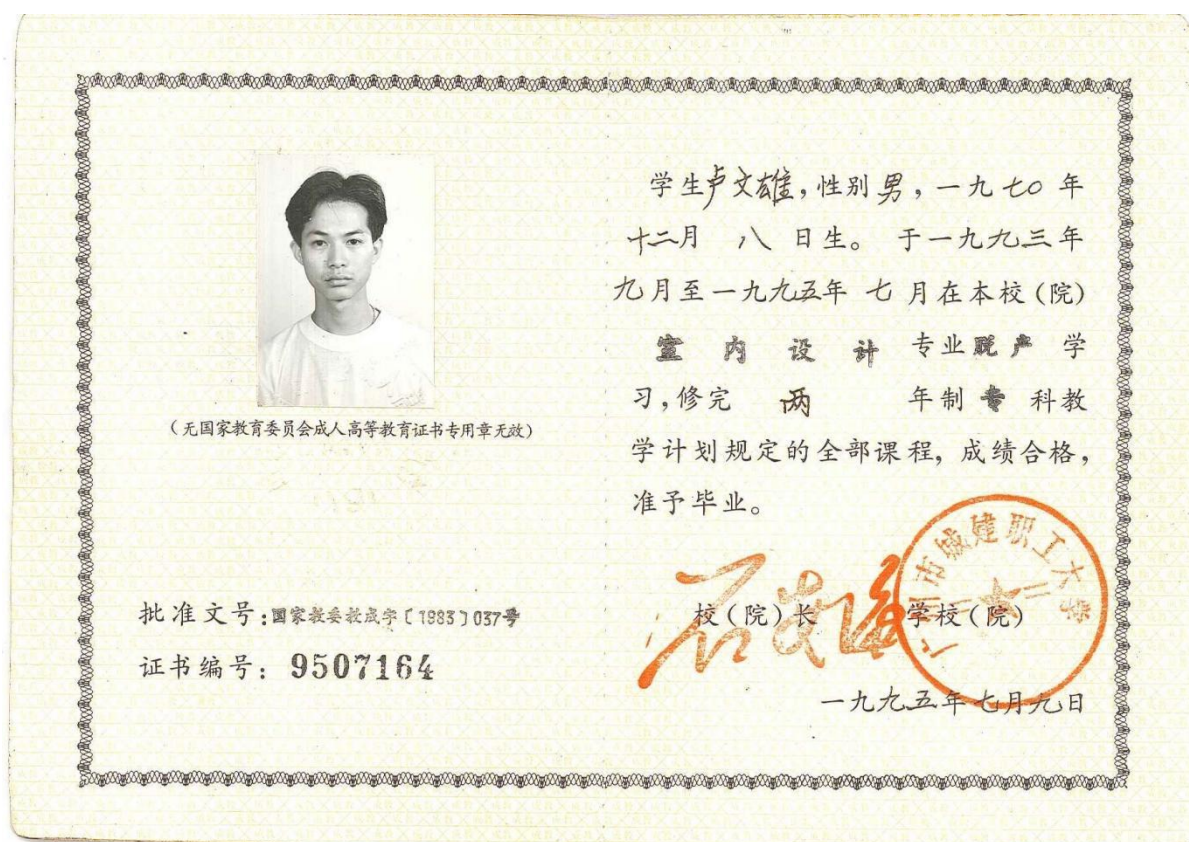 (无国家教育委员会成人高等教育证书专用章无效)
批准文号:国家教委教成字〔1983〕037号
证书编号: 9507164
学生卢文雄,性别男,一九七〇年
十二月 八 日生。 于一九九三年
九月至一九九五年 七 月在本校(院)
室内设计 专业脱产 学
习,修完 两 年制 专 科教
学计划规定的全部课程, 成绩合格,
准予毕业。
广州市城建职工大学
校(院)长 学校(院)
一九九五年七月九日